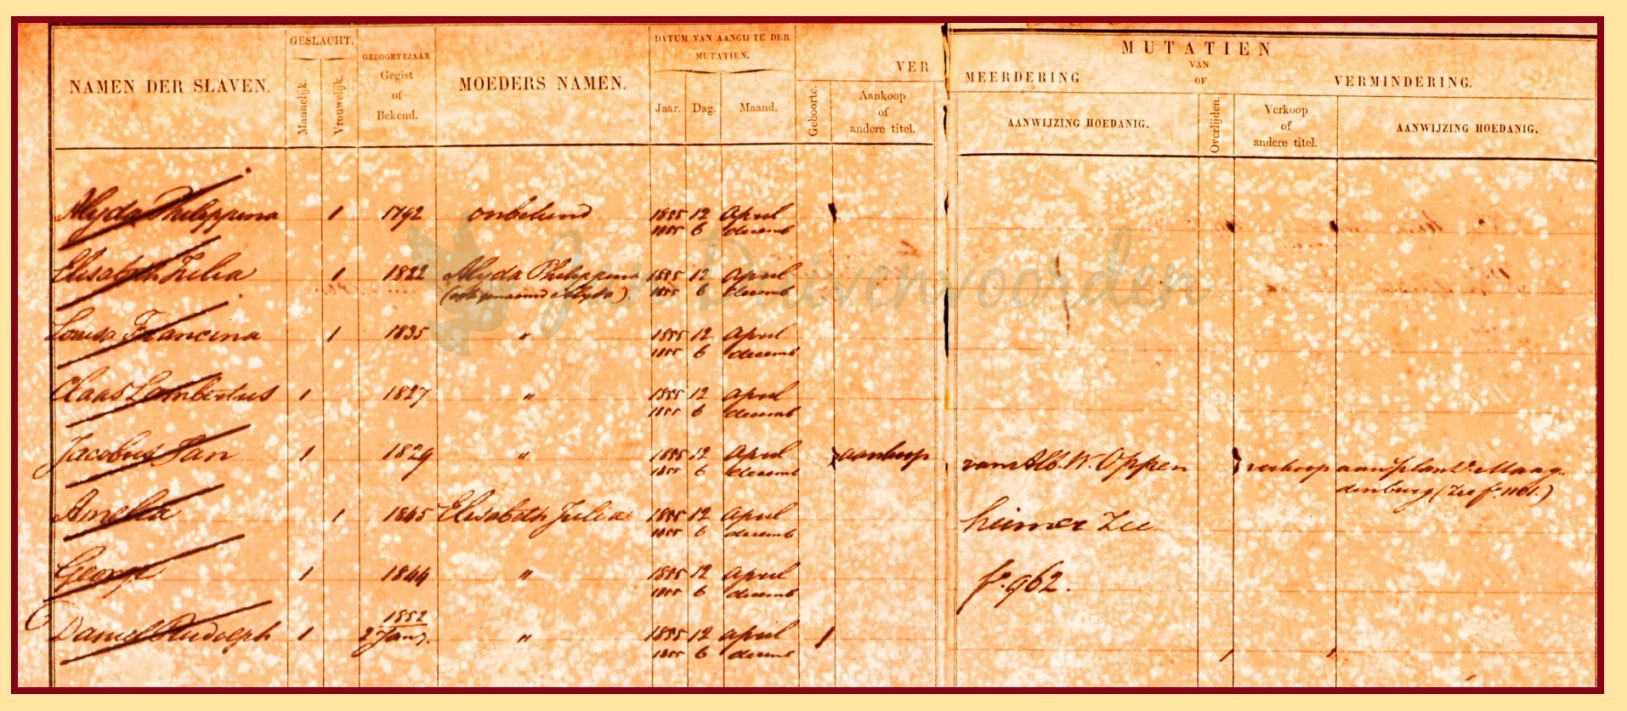 MUTATIEN
GESLACHT.
DATUM VAN AANGIFTE DER
MUTATIEN.
GEBOORTEJAAR
Gegist
of
Bekend.
VER
VAN
OF
MEERDERING
VERMINDERING.
NAMEN DER SLAVEN.
Mannelijk.
Vrouwelijk.
MOEDERS NAMEN.
Jaar.
Dag.
Maand.
Geboorte.
Aankoop
of
andere titel.
AANWIJZING HOEDANIG.
Overlijden.
Verkoop
of
andere titel.
AANWIJZING HOEDANIG.
Alyda Philippina 1 1792 onbekend 1855 12 April
1855 6 decemb
Elisabeth Julia 1 1822 Alyda Philippina 1855 12 April
1855 6 decemb
Louisa Francina 1 1835 " 1855 12 April
1855 6 decemb
Claas Lambertus 1 1827 " 1855 12 April
1855 6 decemb
Jacobus Jan 1 1829 " 1855 12 April aankoop van Alb. W. Oppen verkoop aan plant. Maag
1855 6 decemb denburg (Zie f. 1161.)
Amelia 1 1845 Elisabeth Julia 1855 12 April heimer Zie
1855 6 decemb
George 1 1844 " 1855 12 April f. 962.
1855 6 decemb
1852
Daniel Rudolph 1 2 Jany. " 1855 12 April 1
1855 6 decemb
Jan Duivenvoorden